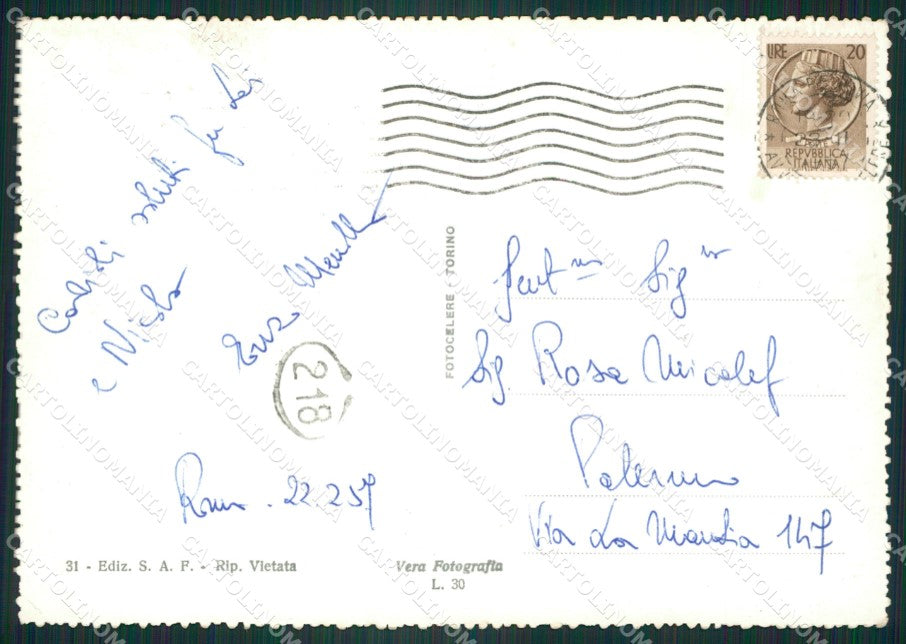 LIRE 20
REPVBBLICA
ITALIANA
Cordiali saluti per Lei
e Nicola
Enzo
218
Roma. 22.2.57
FOTOCELERE - TORINO
Gent.ma Sig.ra
Sig. Rosa Micalef
Palermo
Via La Mantia 147
31 - Ediz. S. A. F. - Rip. Vietata
Vera Fotografia
L. 30
CARTOLINOMANIA